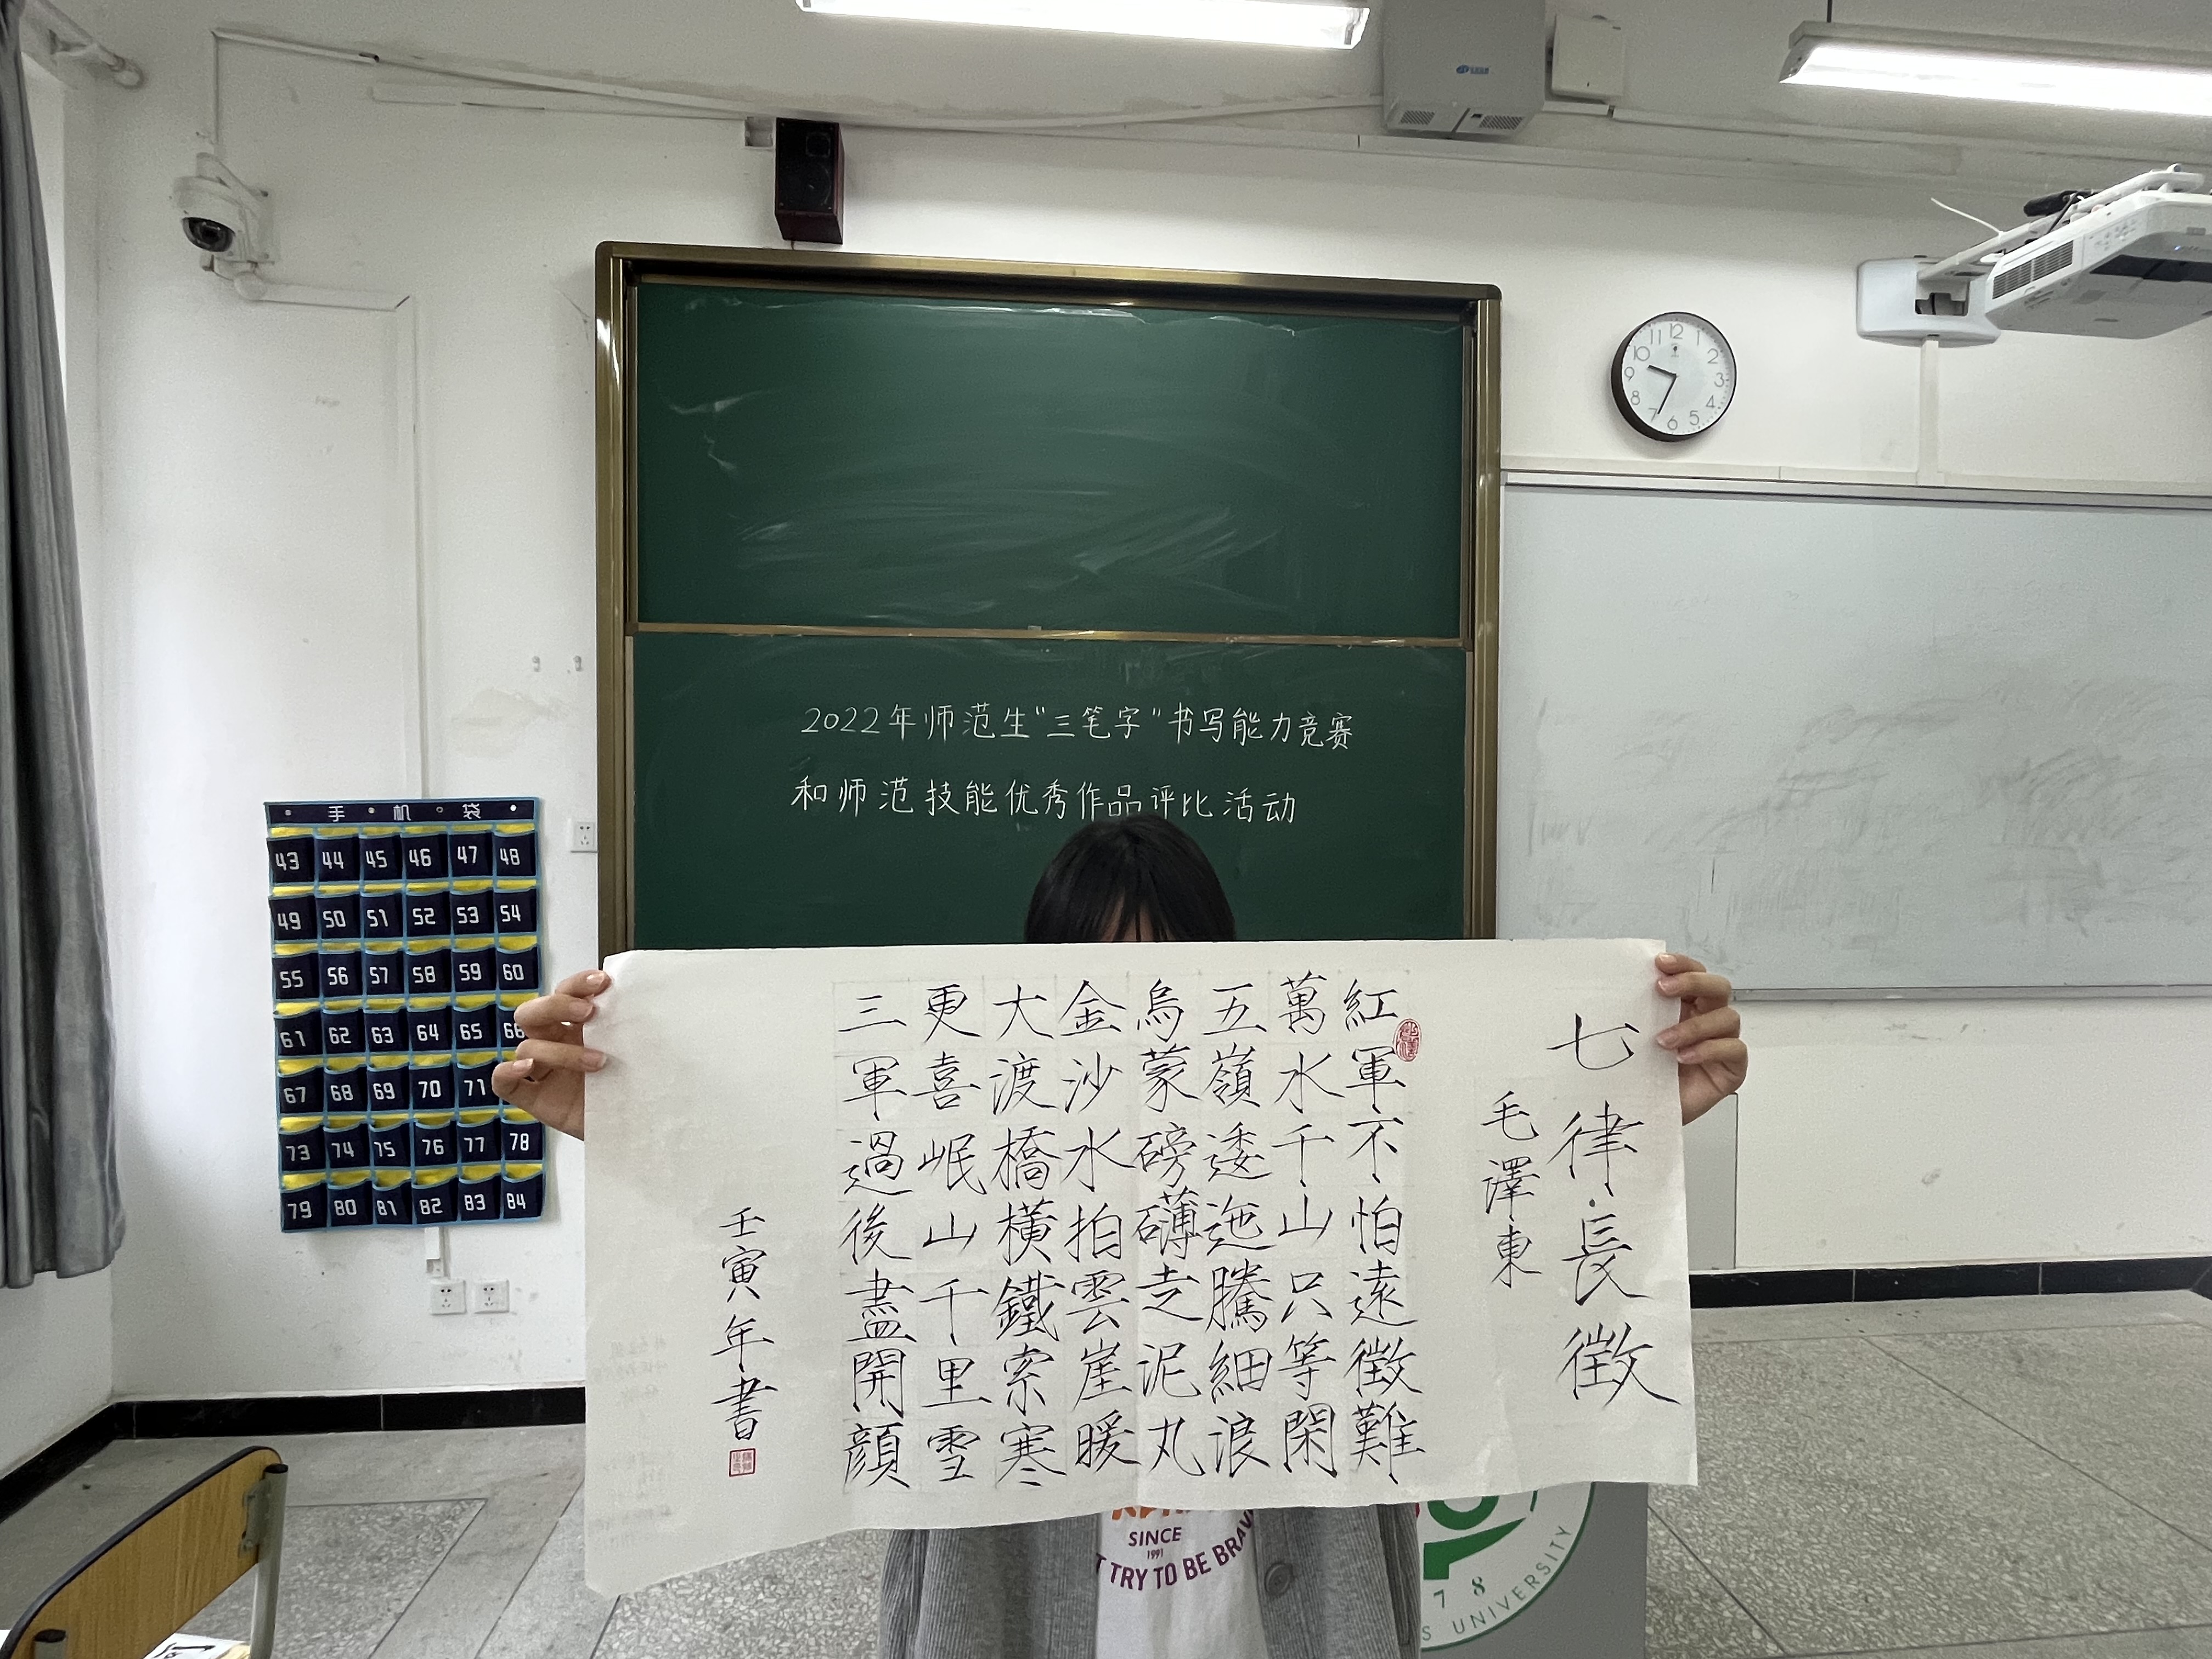 2022年师范生"三笔字"书写能力竞赛
和师范技能优秀作品评比活动
手机袋
43 44 45 46 47 48
49 50 51 52 53 54
55 56 57 58 59 60
61 62 63 64 65 66
67 68 69 70 71
73 74 75 76 77 78
79 80 81 82 83 84
12 1 2 3 4 5 6 7 8 9 10 11
七律·長徵
毛澤東
紅軍不怕遠徵難
萬水千山只等閑
五嶺逶迤騰細浪
烏蒙磅礴走泥丸
金沙水拍雲崖暖
大渡橋橫鐵索寒
更喜岷山千里雪
三軍過後盡開顔
壬寅年書
SINCE
1991
T TRY TO BE BRAV
7 8
S UNIVERSITY